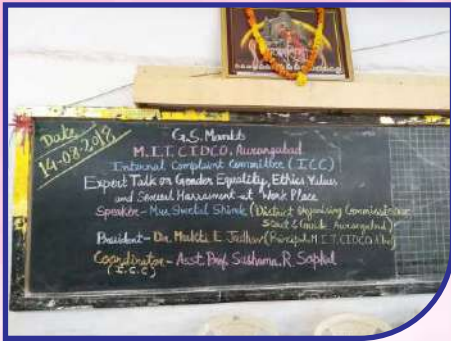 Date
14-08-2018
G.S. Mandal's
M.I.T. CIDCO, Aurangabad
Internal Complaint Committee (ICC)
Expert Talk on Gender Equality, Ethics Values
and Sexual Harrasment at Work Place
Speaker - Mrs. Sheetal Shinde (District Organising Commissioner
Scout & Guide Aurangabad)
President - Dr. Mukti E. Jadhav (Principal, M.I.T. CIDCO
Coordinator - Asst. Prof. Sushama. R. Sapkal
(I.C.C)